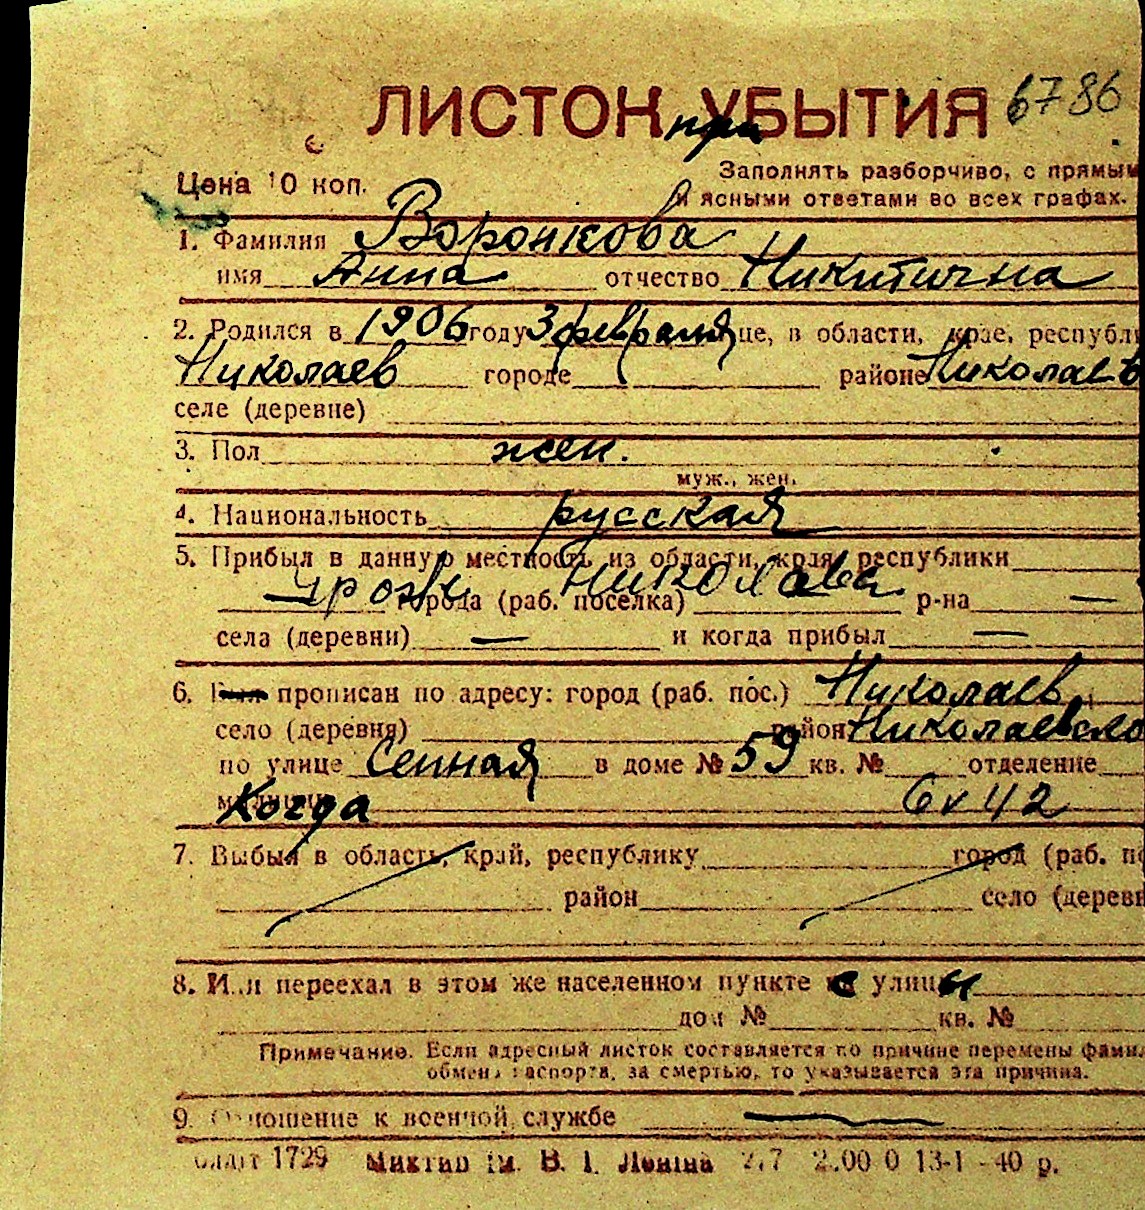 ЛИСТОК УБЫТИЯ 6786
при
Цена 10 коп.
Заполнять разборчиво, с прямым
и ясными ответами во всех графах.
1. Фамилия Воронкова
имя Анна отчество Никитична
2. Родился в 1906 году 3 февраля це, в области, крае, республ
Николаев городе районе Николаев
селе (деревне)
3. Пол жен.
муж., жен.
4. Национальность русская
5. Прибыл в данную местность из области, края, республики
Урож. Николаева
города (раб. поселка) р-на —
села (деревни) — и когда прибыл —
6. прописан по адресу: город (раб. пос.) Николаев
село (деревня) район Николаевско
по улице Сенная в доме № 59 кв. № отделение
Когда 6 v 42
7. Выбыл в область, край, республику город (раб. по
район село (деревн
8. Или переехал в этом же населенном пункте с улицы
дом № кв. №
Примечание. Если адресный листок составляется по причине перемены фами
обмена паспорта, за смертью, то указывается эта причина.
9. Отношение к военной службе —
1729 им. В. І. Леніна 2.00 0 13-1 - 40 р.